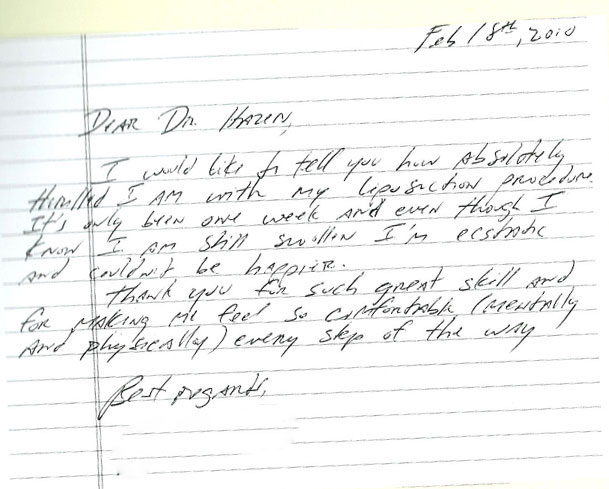 Feb 18th, 2010
Dear Dr. Hazen,
I would like to tell you how absolutely
thrilled I am with my liposuction procedure.
It's only been one week and even though I
know I am still swollen I'm ecstatic
and couldn't be happier.
Thank you for such great skill and
for making me feel so comfortable (mentally
and physically) every step of the way
Best regards,